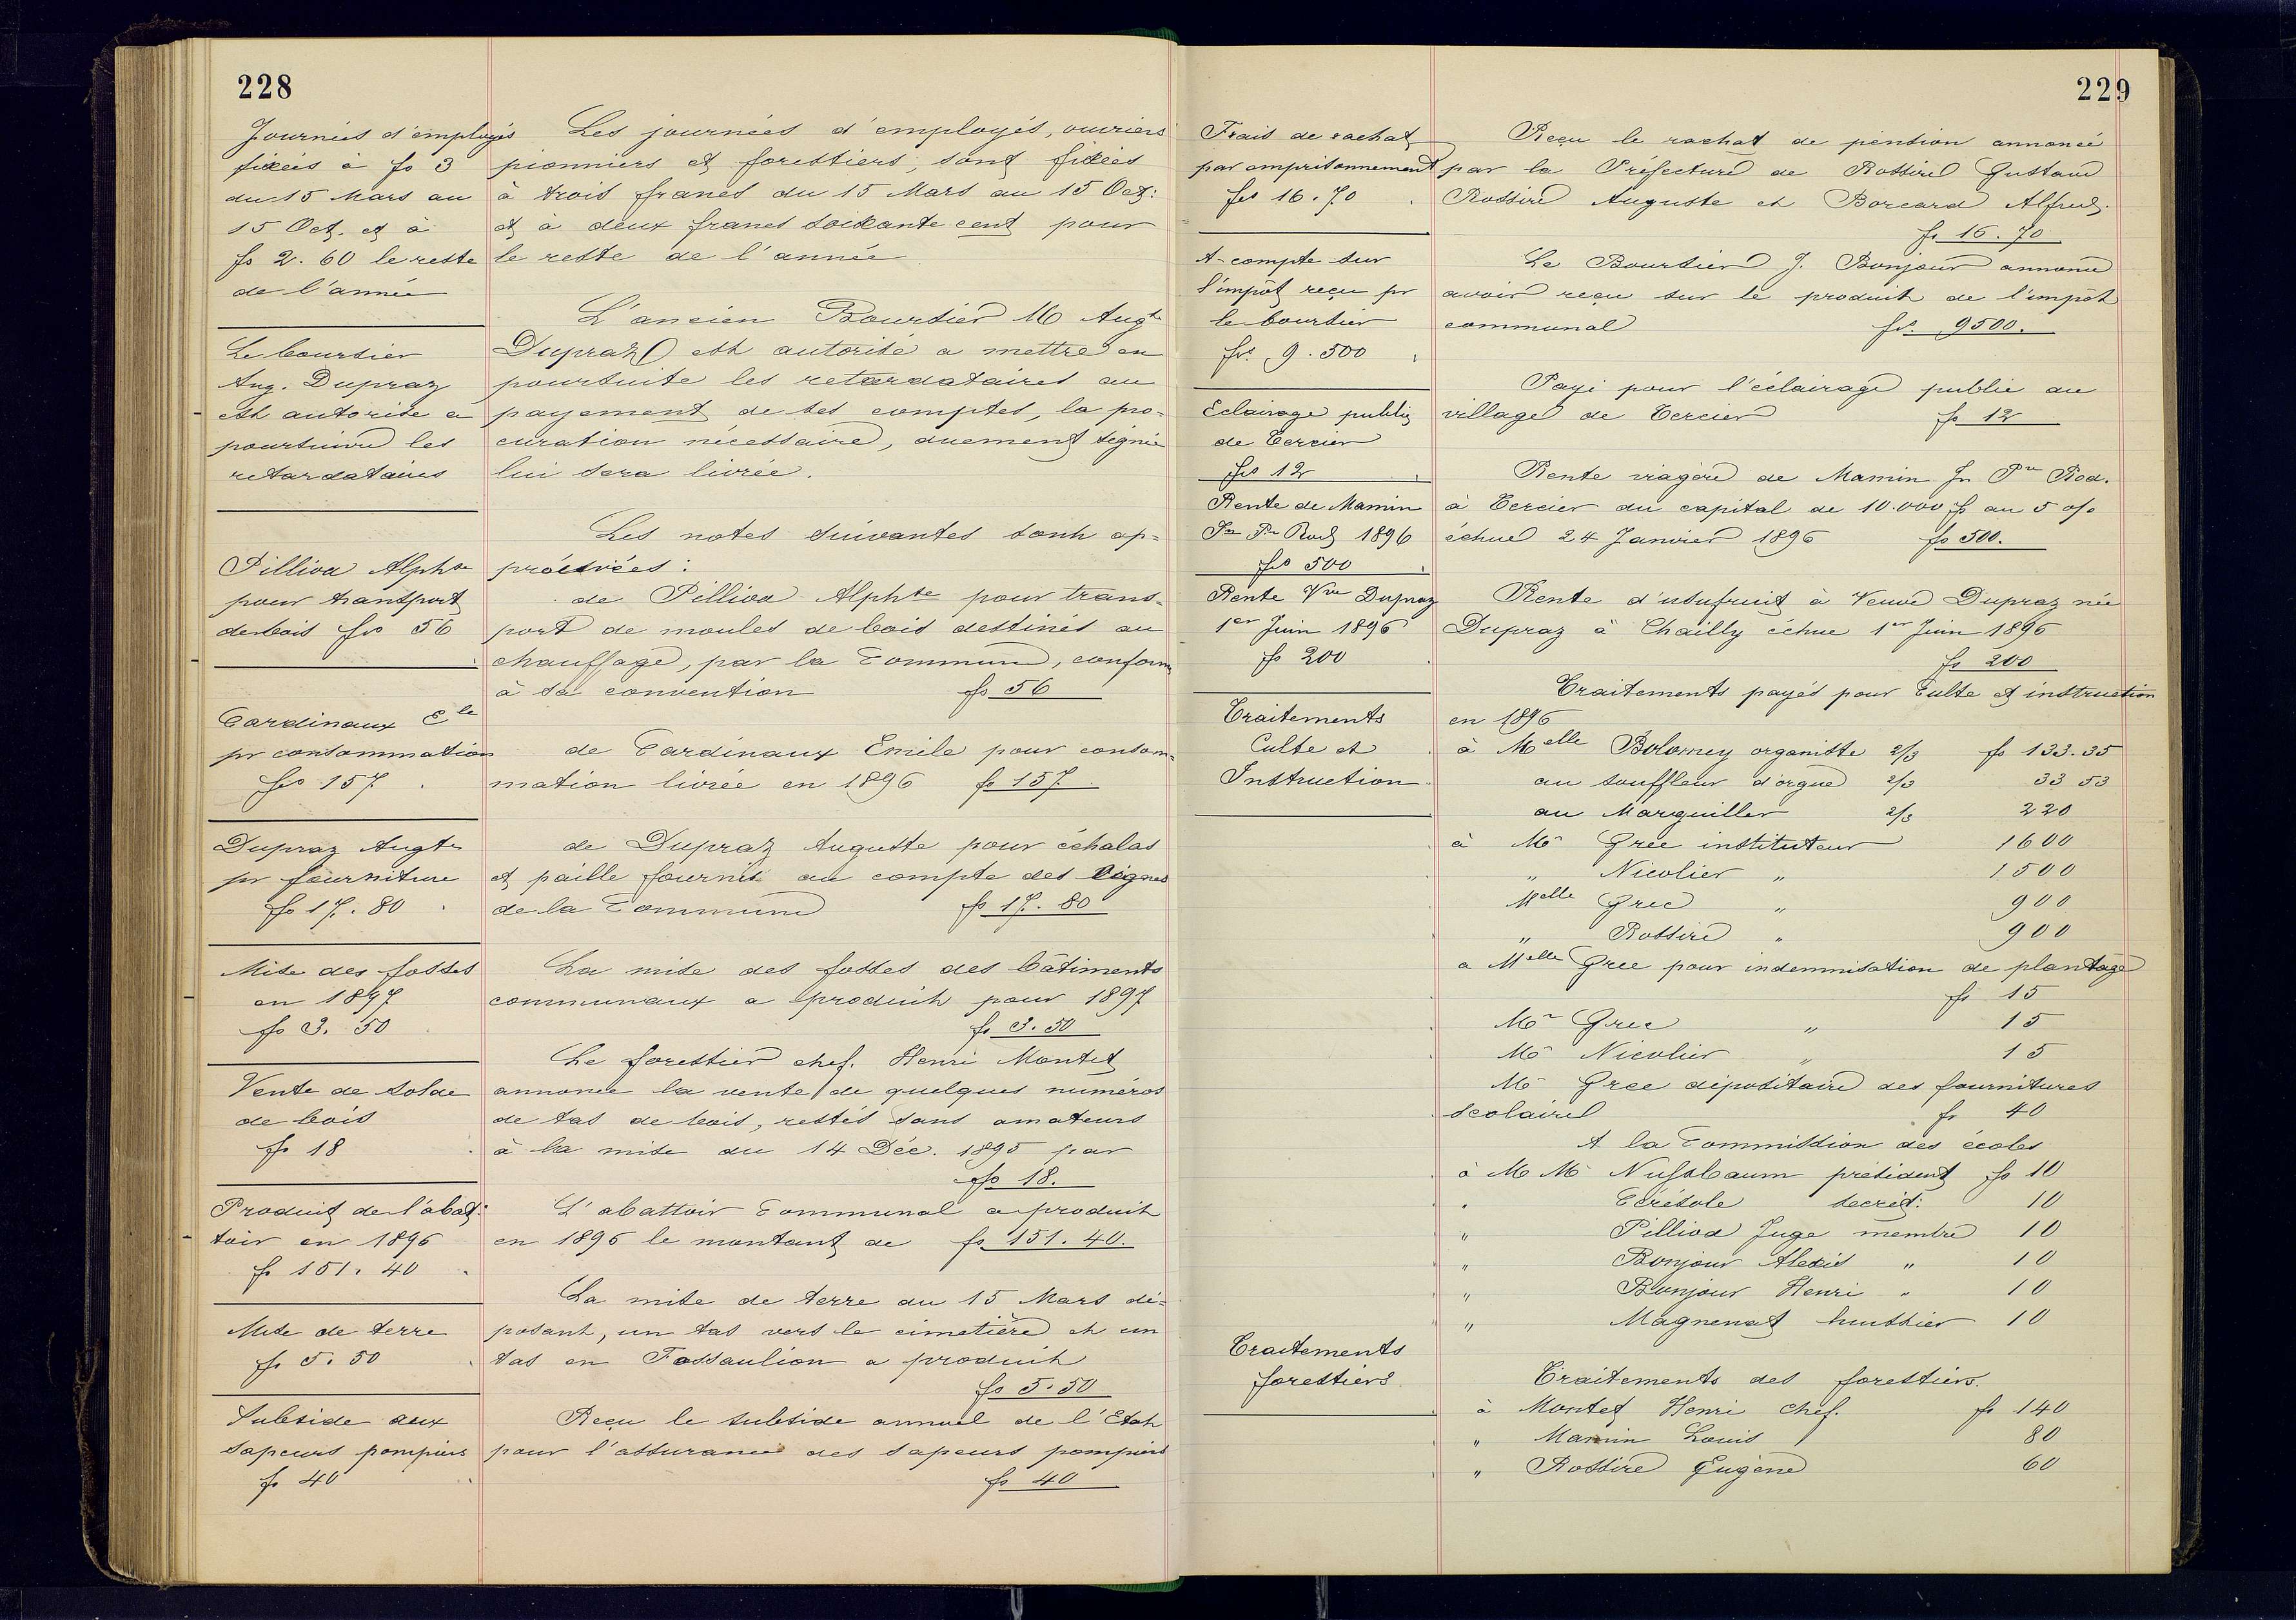 228
Journées d'employés
fixées à fs 3
du 15 Mars au
15 Oct. et à
fs 2.60 le reste
de l'année
Les journées d'employés, ouvriers
pionniers et forestiers, sont fixées
à trois francs du 15 Mars au 15 Oct:
et à deux francs soixante cent pour
le reste de l'année.
Le boursier
Aug. Dupraz
est autorisé à
poursuivre les
retardataires
L'ancien Boursier M Augte
Dupraz est autorisé a mettre en
poursuite les retardataires au
payement de ses comptes, la pro=
curation nécessaire, duement signée
lui sera livrée.
Les notes suivantes sont ap=
prouvées:
Pilliod Alphse
pour transport
de bois frs 56
de Pilliod Alphse pour trans-
port de moules de bois destinés au
chauffage, par la Commune, conforme
à sa convention fs 56
Cardinaux Ele
pr consommation
frs 157
de Cardinaux Emile pour consom=
mation livrée en 1896 fs 157.
Dupraz Augte
pr fourniture
fs 17.80
de Dupraz Auguste pour échalas
et paille fournis au compte des vignes
de la Commune fs 17.80
Mise des fosses
en 1897
fs 3.50
La mise des fosses des bâtiments
communaux a produit pour 1897
fs 3.50
Vente de solde
de bois
fs 18
Le forestier chef. Henri Montet
annonce la vente de quelques numéros
de tas de bois, restés sans amateurs
à la mise du 14 Déc. 1895 par
fs 18.
Produit de l'abat:
toir en 1896
fs 151.40
L'abattoir Communal a produit
en 1896 le montant de fs 151.40.
Mise de terre
fs 5.50
La mise de terre du 15 Mars dé=
posant, un tas vers le cimetière et un
tas en Fossaulion a produit
fs 5.50
Subside aux
sapeurs pompiers
fs 40
Reçu le subside annuel de l'Etat
pour l'assurance des sapeurs pompiers
fs 40
229
Frais de rachat
par emprisonnement
frs 16.70
Reçu le rachat de pension annoncé
par la Préfecture de Rossire Gustave
Rossire Auguste et Borcard Alfred.
fs 16.70
A-compte sur
l'impôt reçu pr
le boursier
frs 9.500
Le Boursier J. Bonjour annonce
avoir reçu sur le produit de l'impôt
communal frs 9500.
Eclairage public
de Cercier
frs 12
Payé pour l'éclairage public au
village de Cercier fs 12
Rente de Mamin
Jn Pre Rod 1896
frs 500
Rente viagère de Mamin Jn Pre Rod.
à Cercier du capital de 10.000 fs au 5 o/o
échue 24 Janvier 1896 fs 500.
Rente Vve Dupraz
1er Juin 1896
fs 200
Rente d'usufruit à Veuve Dupraz née
Dupraz à Chailly échue 1er Juin 1896
fs 200
Traitements
Culte et
Instruction
Traitements payés pour Culte et instruction
en 1896
à Melle Bolomey organiste 2/3 fs 133.35
au souffleur d'orgue 2/3 33 53
au Marguiller 2/3 220
à Mr Grec instituteur 1600
" Nicolier " 1500
Melle Grec " 900
" Rossire " 900
a Melle Grec pour indemnisation de plantage
fs 15
Mr Grec " 15
Mr Nicolier " 15
Mr Grec dépositaire des fournitures
scolaires fs 40
A la Commission des écoles
à M Mr Nussbaum président fs 10
" Cérésole secrét: 10
" Pilliod Juge membre 10
" Bonjour Alexis " 10
" Bonjour Henri " 10
" Magnenat huissier 10
Traitements
forestiers.
Traitements des forestiers.
à Montet Henri chef. fs 140
" Mamin Louis 80
" Rossire Eugène 60